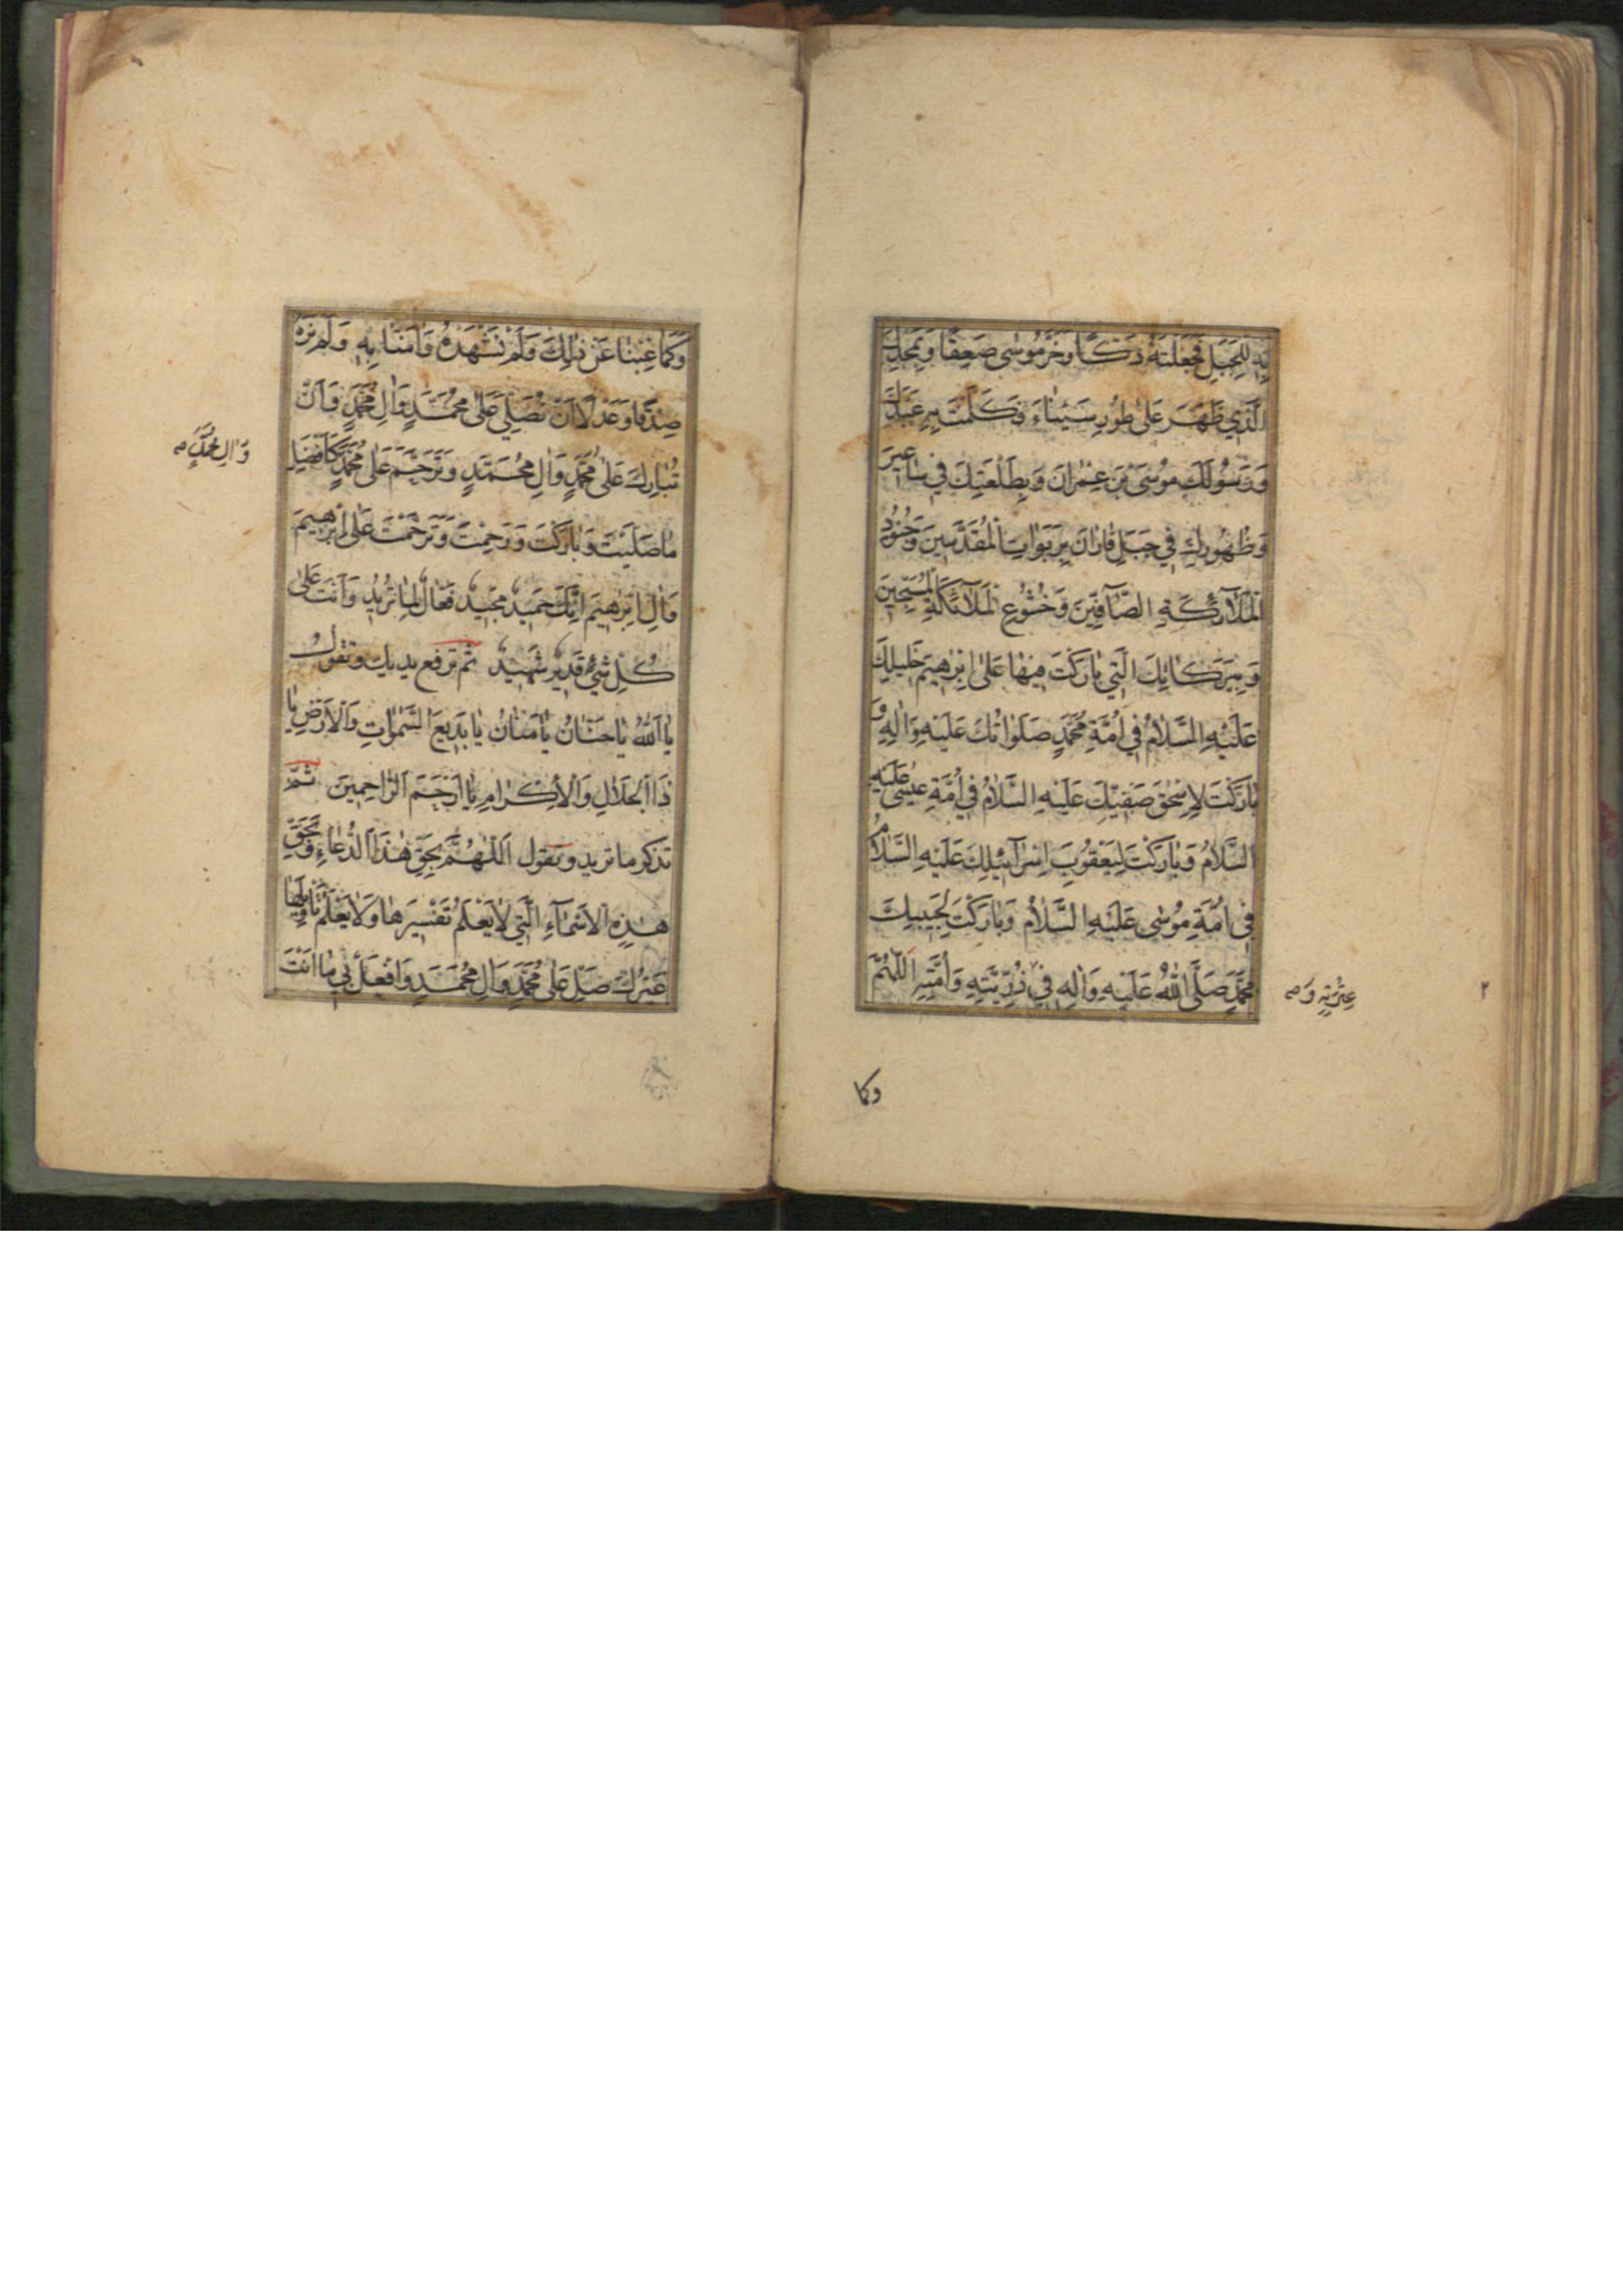 بِهِ لِلْجَبَلِ فَجَعَلْتَهُ دَكًّا وَخَرَّ مُوسٰى صَعِقًا وَبِمَجْدِكَ
الَّذِي ظَهَرَ عَلٰى طُورِ سَيْنَاءَ فَكَلَّمْتَ بِهِ عَبْدَكَ
وَرَسُولَكَ مُوسَى بْنَ عِمْرَانَ وَبِطَلْعَتِكَ فِي سَاعِيرَ
وَظُهُورِكَ فِي جَبَلِ فَارَانَ بِرَبَوَاتِ الْمُقَدَّسِينَ وَجُنُودِ
الْمَلَآئِكَةِ الصَّآفِّينَ وَخُشُوعِ الْمَلَآئِكَةِ الْمُسَبِّحِينَ
وَبِبَرَكَاتِكَ الَّتِي بَارَكْتَ فِيهَا عَلٰى اِبْرٰهِيمَ خَلِيلِكَ
عَلَيْهِ السَّلَامُ فِي اُمَّةِ مُحَمَّدٍ صَلَوَاتُكَ عَلَيْهِ وَاٰلِهِ وَ
بَارَكْتَ لِاِسْحٰقَ صَفِيِّكَ عَلَيْهِ السَّلَامُ فِي اُمَّةِ عِيسٰى عَلَيْهِ
السَّلَامُ وَبَارَكْتَ لِيَعْقُوبَ اِسْرَآئِيلِكَ عَلَيْهِ السَّلَامُ
فِي اُمَّةِ مُوسٰى عَلَيْهِ السَّلَامُ وَبَارَكْتَ لِحَبِيبِكَ
مُحَمَّدٍ صَلَّى اللهُ عَلَيْهِ وَاٰلِهِ فِي ذُرِّيَّتِهِ وَاُمَّتِهِ اَللّٰهُمَّ
عِتْرَتِهِ وَ صح
٢
وكما
وَكَمَا غِبْنَا عَنْ ذٰلِكَ وَلَمْ نَشْهَدْهُ وَاٰمَنَّا بِهِ وَلَمْ نَرَهُ
صِدْقًا وَعَدْلًا اَنْ تُصَلِّيَ عَلٰى مُحَمَّدٍ وَاٰلِ مُحَمَّدٍ وَاَنْ
تُبَارِكَ عَلٰى مُحَمَّدٍ وَاٰلِ مُحَمَّدٍ وَتَرَحَّمَ عَلٰى مُحَمَّدٍ كَاَفْضَلِ
وَاٰلِ مُحَمَّدٍ صح
مَا صَلَّيْتَ وَبَارَكْتَ وَرَحِمْتَ وَتَرَحَّمْتَ عَلٰى اِبْرٰهِيمَ
وَاٰلِ اِبْرٰهِيمَ اِنَّكَ حَمِيدٌ مَجِيدٌ فَعَّالٌ لِمَا تُرِيدُ وَاَنْتَ عَلٰى
كُلِّ شَيْءٍ قَدِيرٌ شَهِيدٌ ثم ترفع يديك وتقول
يَا اَللهُ يَا حَنَّانُ يَا مَنَّانُ يَا بَدِيعَ السَّمٰوَاتِ وَالْاَرْضِ يَا
ذَا الْجَلَالِ وَالْاِكْرَامِ يَا اَرْحَمَ الرَّاحِمِينَ ثم
تذكر ما تريد وتقول اَللّٰهُمَّ بِحَقِّ هٰذَا الدُّعَاءِ وَبِحَقِّ
هٰذِهِ الْاَسْمَآءِ الَّتِي لَا يَعْلَمُ تَفْسِيرَهَا وَلَا يَعْلَمُ تَاْوِيلَهَا
غَيْرُكَ صَلِّ عَلٰى مُحَمَّدٍ وَاٰلِ مُحَمَّدٍ وَافْعَلْ بِي مَا اَنْتَ